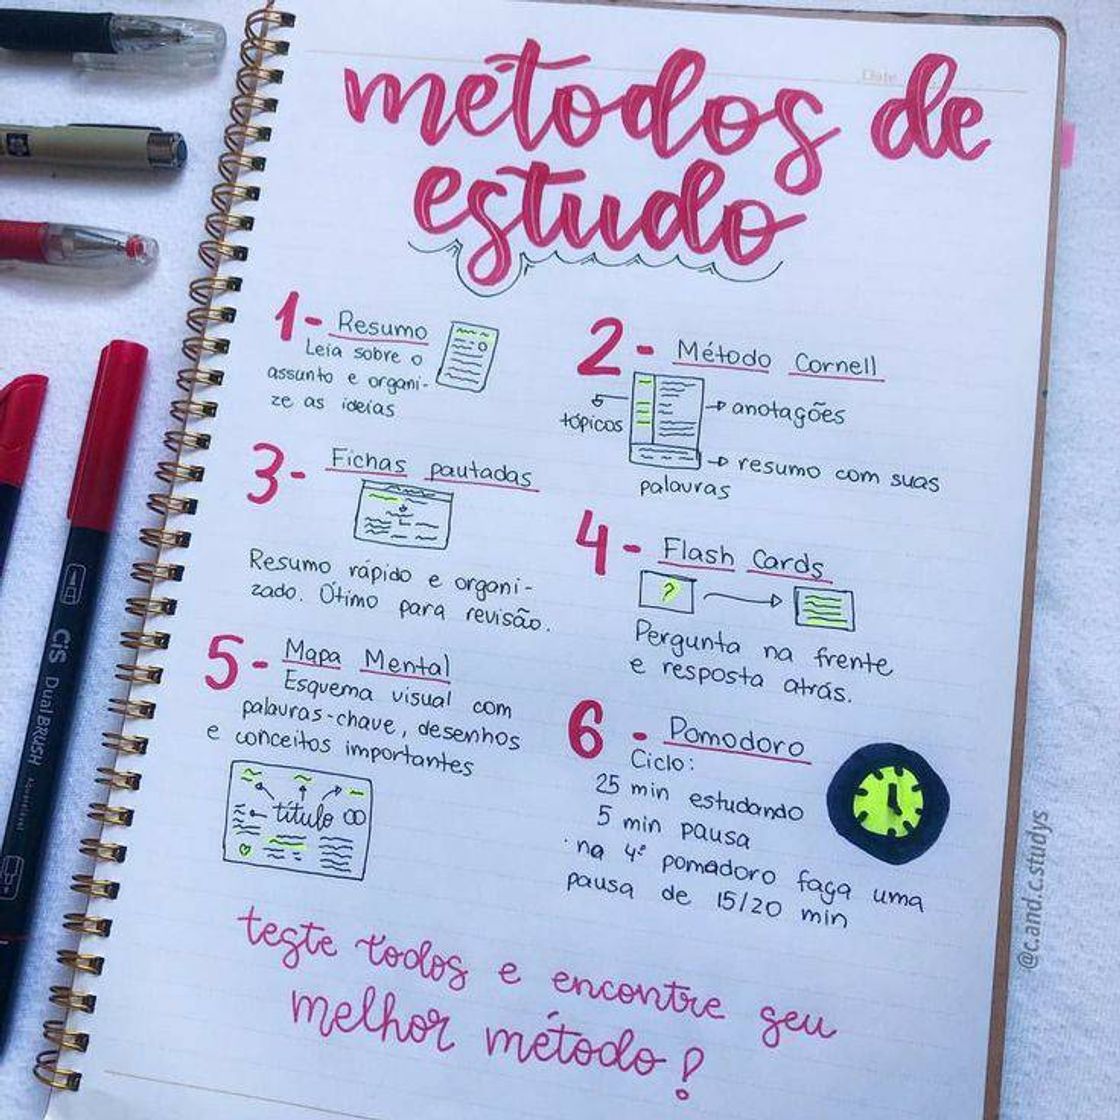 Date
métodos de
estudo
1- Resumo
Leia sobre o
assunto e organi-
ze as ideias
2- Método Cornell
tópicos
anotações
resumo com suas
palavras
3- Fichas pautadas
Resumo rápido e organi-
zado. Ótimo para revisão.
4- Flash Cards
?
Pergunta na frente
e resposta atrás.
5- Mapa Mental
Esquema visual com
palavras-chave, desenhos
e conceitos importantes
título
6- Pomodoro
Ciclo:
25 min estudando
5 min pausa
·na 4º pomadoro faça uma
pausa de 15/20 min
teste todos e encontre seu
melhor método!
CiS Dual BRUSH Aquarelável
@c.and.c.studys